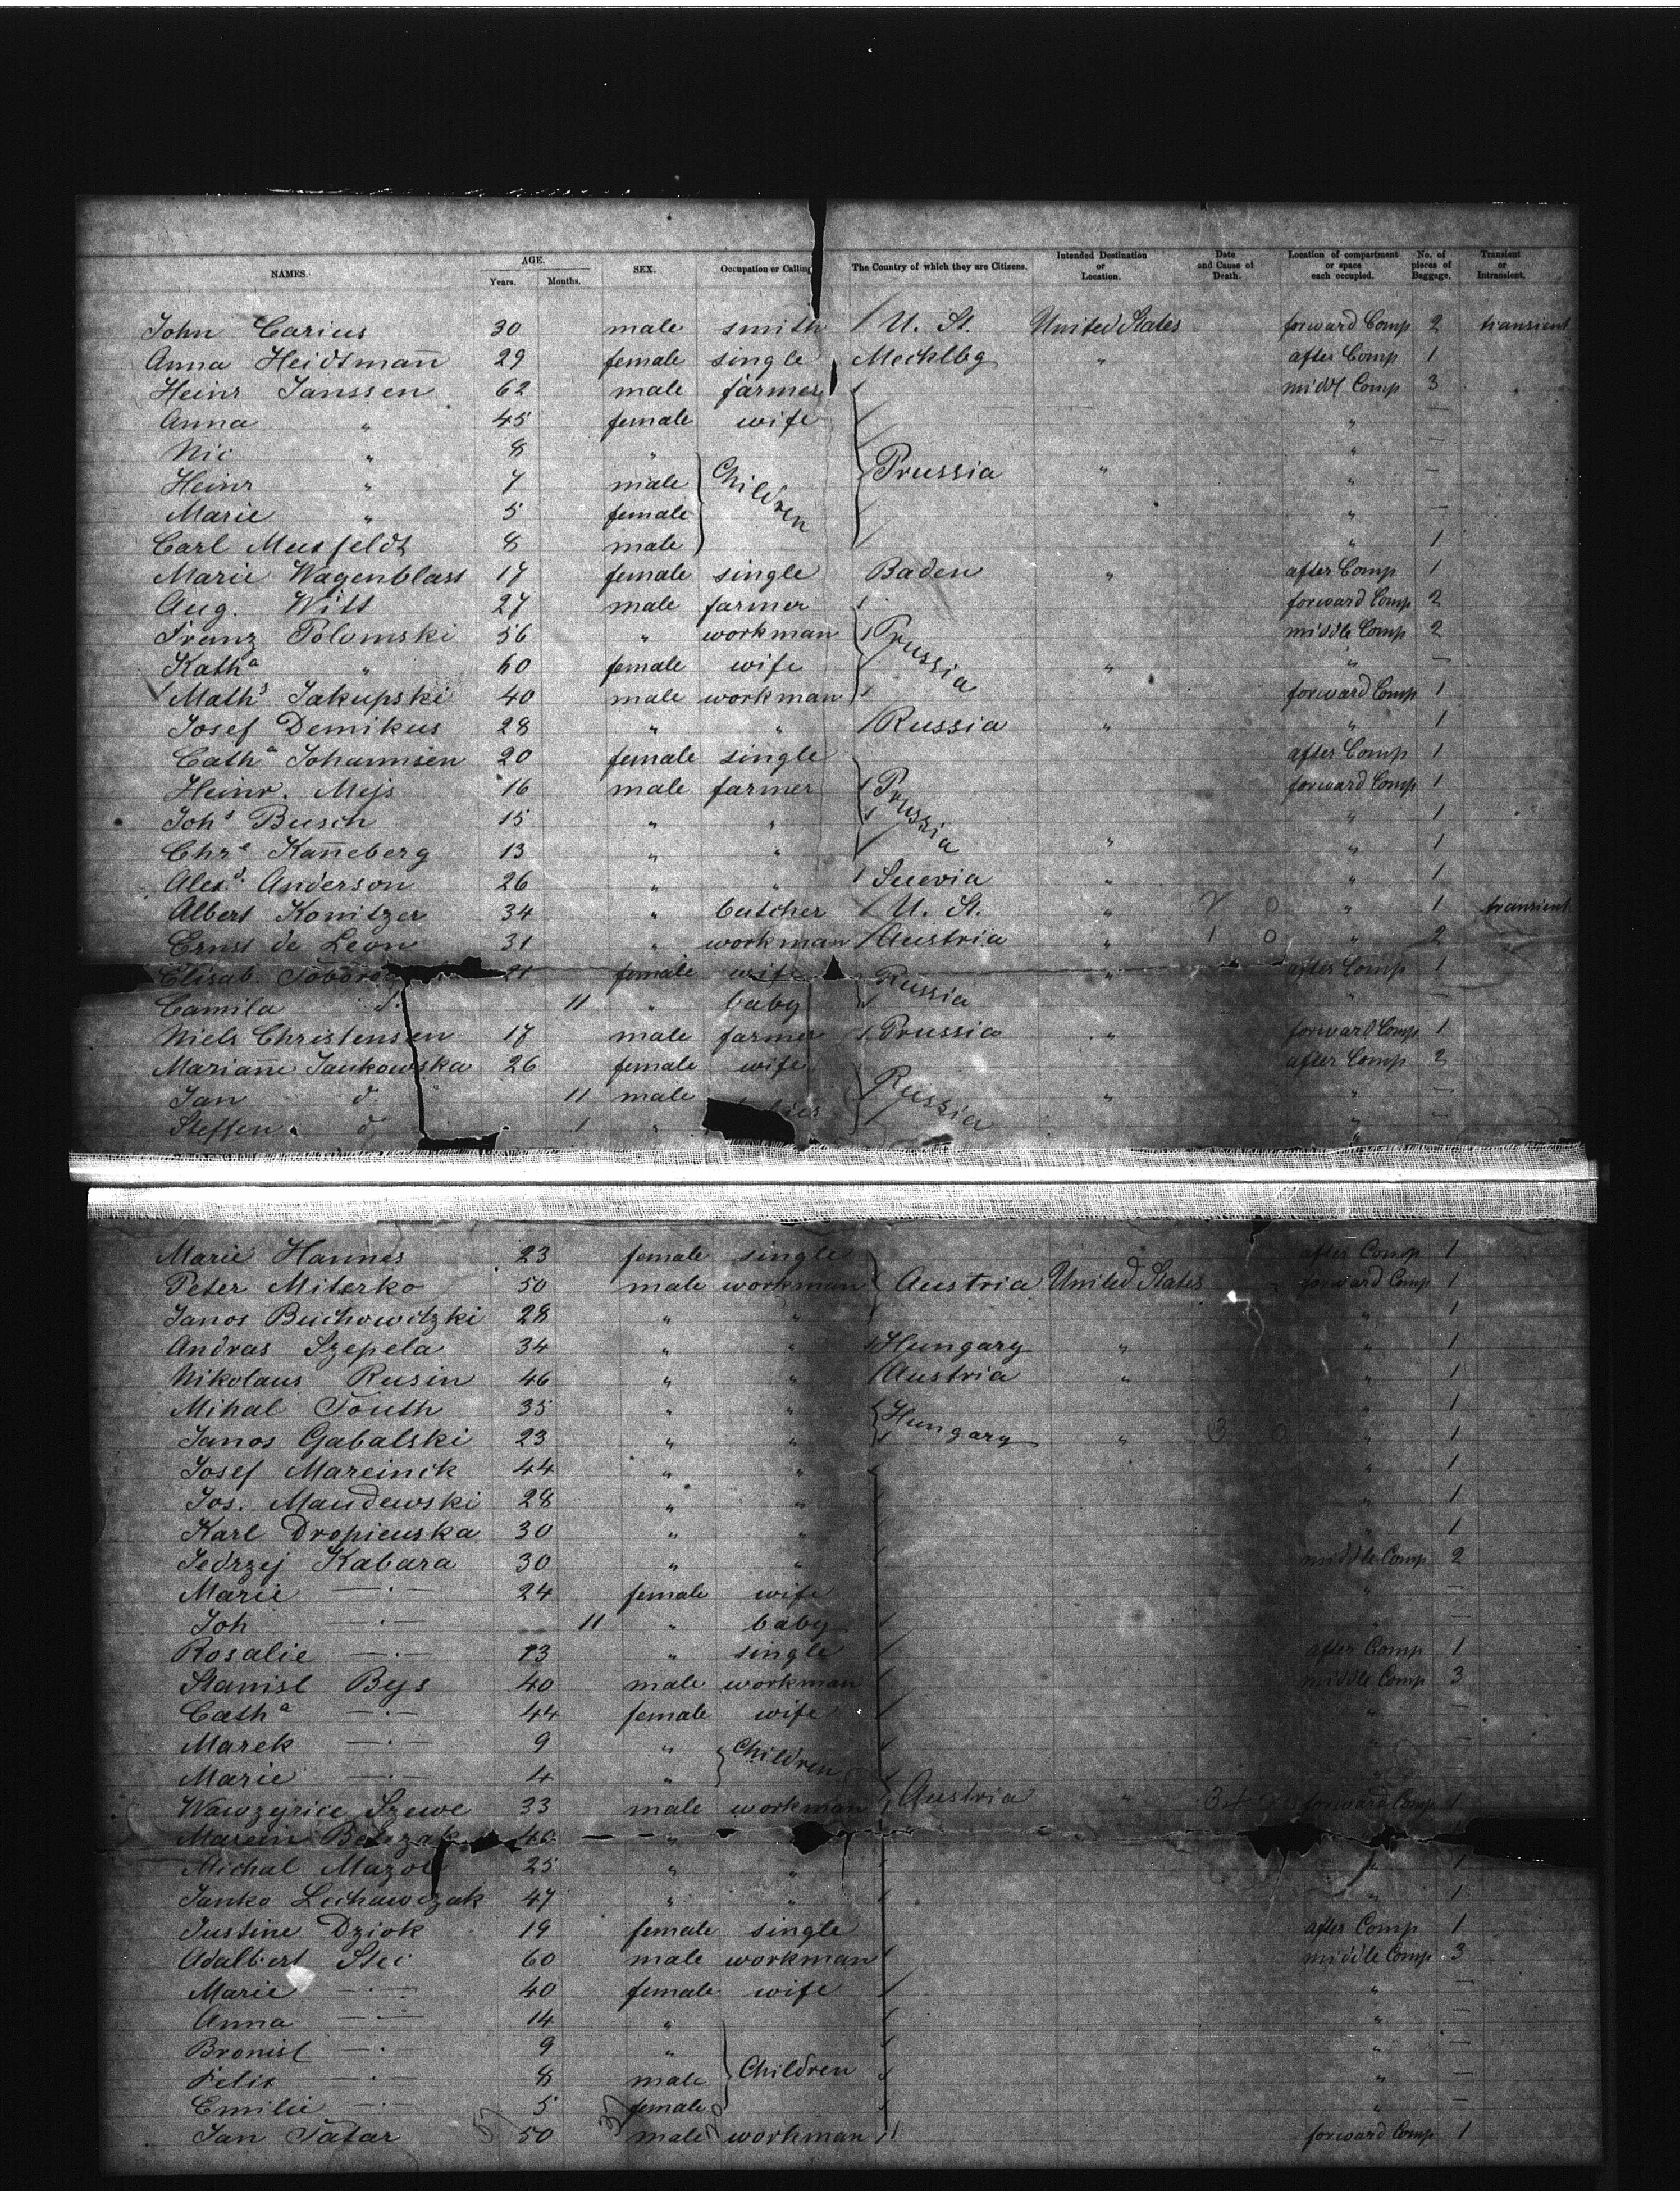 NAMES. AGE. Years. Months. SEX. Occupation or Calling The Country of which they are Citizens. Intended Destination or Location. Date and Cause of Death. Location of compartment or space each occupied. No. of pieces of Baggage. Transient or Intransient.
John Carius 30 male smith U. St. United States forward Comp 2 transient
Anna Heidtman̄ 29 female single Mecklbg " after Comp 1
Heinr Janssen 62 male farmer middl Comp 3 "
Anna " 45 female wife " —
Nic " 8 " "
Heinr " 7 male Children Prussia " " —
Marie " 5 female " —
Carl Musfeldt 8 male " 1
Marie Wagenblass 17 female single Baden " after Comp 1
Aug. Witt 27 male farmer forward Comp 2
Franz Polomski 56 " workman Prussia middle Comp 2
Kathª " 60 female wife " " —
Maths Jakupski 40 male workman forward Comp 1
Josef Demikus 28 " " Russia " " 1
Cathª Johannsen 20 female single after Comp 1
Heinr. Mejs 16 male farmer Prussia forward Comp 1
Johs Busch 15 " " " 1
Chre Kan̄eberg 13 " " " " 1
Alexd. Anderson 26 " " Suevia " " 1
Albert Konitzer 34 " butcher U. St. " 2 0 " 1 transient
Ernst de Leon 31 " workman Austria " 1 0 " 2
Elisab. 21 female wife Russia " after Comp 1
Camila d. 11 " baby " —
Niels Christensen 17 male farmer Prussia " forward Comp 1
Marian̄e Jankowska 26 female wife after Comp 2
Jan d. 11 male Russia " " —
Steffen d. 1 " " —
Marie Hannes 23 female single after Comp 1
Peter Miterko 50 male workman Austria United States forward Comp 1
Janos Buchowitzki 28 " " " 1
Andras Szepela 34 " " Hungary " " 1
Nikolaus Rusin 46 " " Austria " " 1
Mihal Touth 35 " " Hungary " 1
Janos Gabalski 23 " " " 3 0 " 1
Josef Mareinck 44 " " " 1
Jos. Maudewski 28 " " " 1
Karl Dropieuska 30 " " " 1
Jedrzej Kabara 30 " " middle Comp 2
Marie —·— 24 female wife " —
Joh —·— 11 " baby " —
Rosalie —·— 13 " single after Comp 1
Stanisl Bejs 40 male workman middle Comp 3
Cathª —·— 44 female wife " —
Marek —·— 9 " Children " —
Marie —·— 4 " " —
Wawzejrice Szewe 33 male workman Austria " 34 forward Comp 1
Marcin 40 "
Michal Mazol 25 " " " 1
Janko Lechawczak 47 " " " 1
Justine Dziok 19 female single after Comp 1
Adalbert Stei 60 male workman middle Comp 3
Marie —·— 40 female wife " —
Anna —·— 14 " " —
Bronisl —·— 9 " " —
Felix —·— 8 male Children " —
Emilie —·— 5 female " —
Jan Tatar 50 male workman forward Comp 1